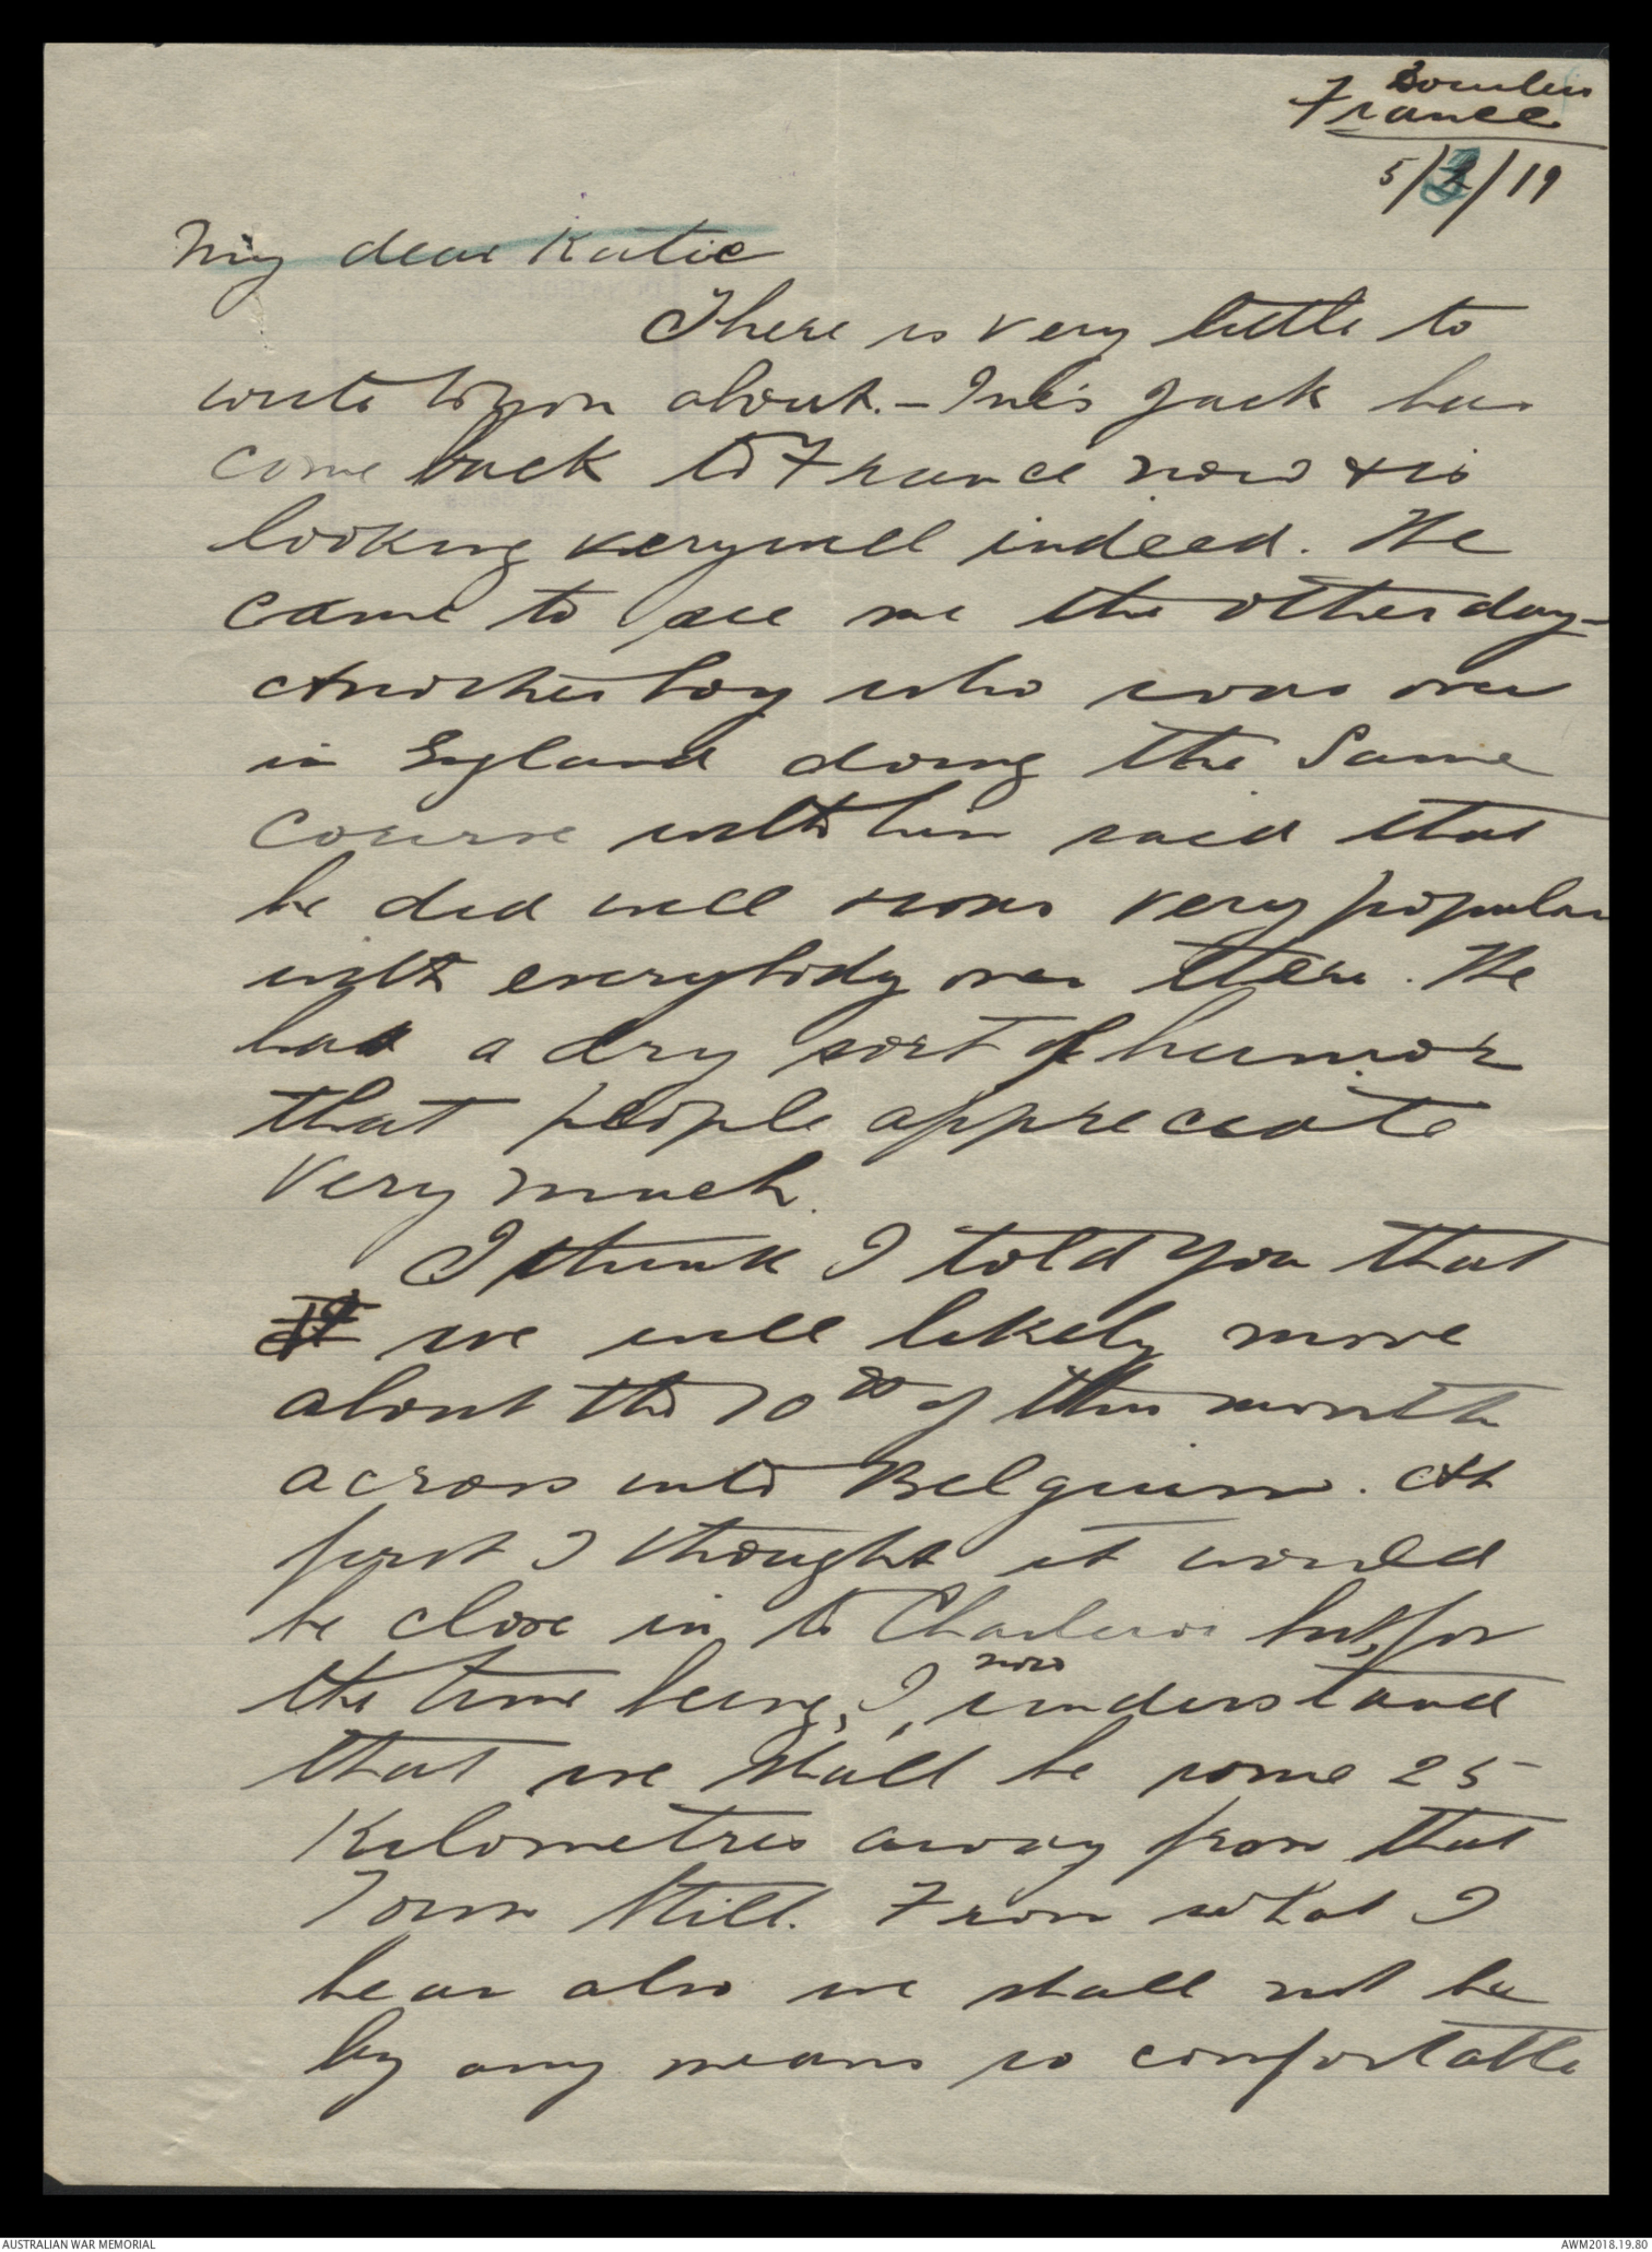 France
5/3/19
My dear Katie
There is very little to
write to you about. - Ine's Jack has
come back to France now & is
looking very well indeed. He
came to see me the other day -
Another boy who was over
in England doing the same
course with him said that
he did well & was very popular
with everybody over there. He
has a dry sort of humor
that people appreciate
very much.
I think I told you that
we will likely move
about the 10th of this month
across into Belgium. At
first I thought it would
be close in to Charleroi but, for
the time being, I, now understand
that we shall be some 25
Kilometres away from that
Town still. From what I
hear also we shall not be
by any means so comfortable
AUSTRALIAN WAR MEMORIAL
AWM2018.19.80